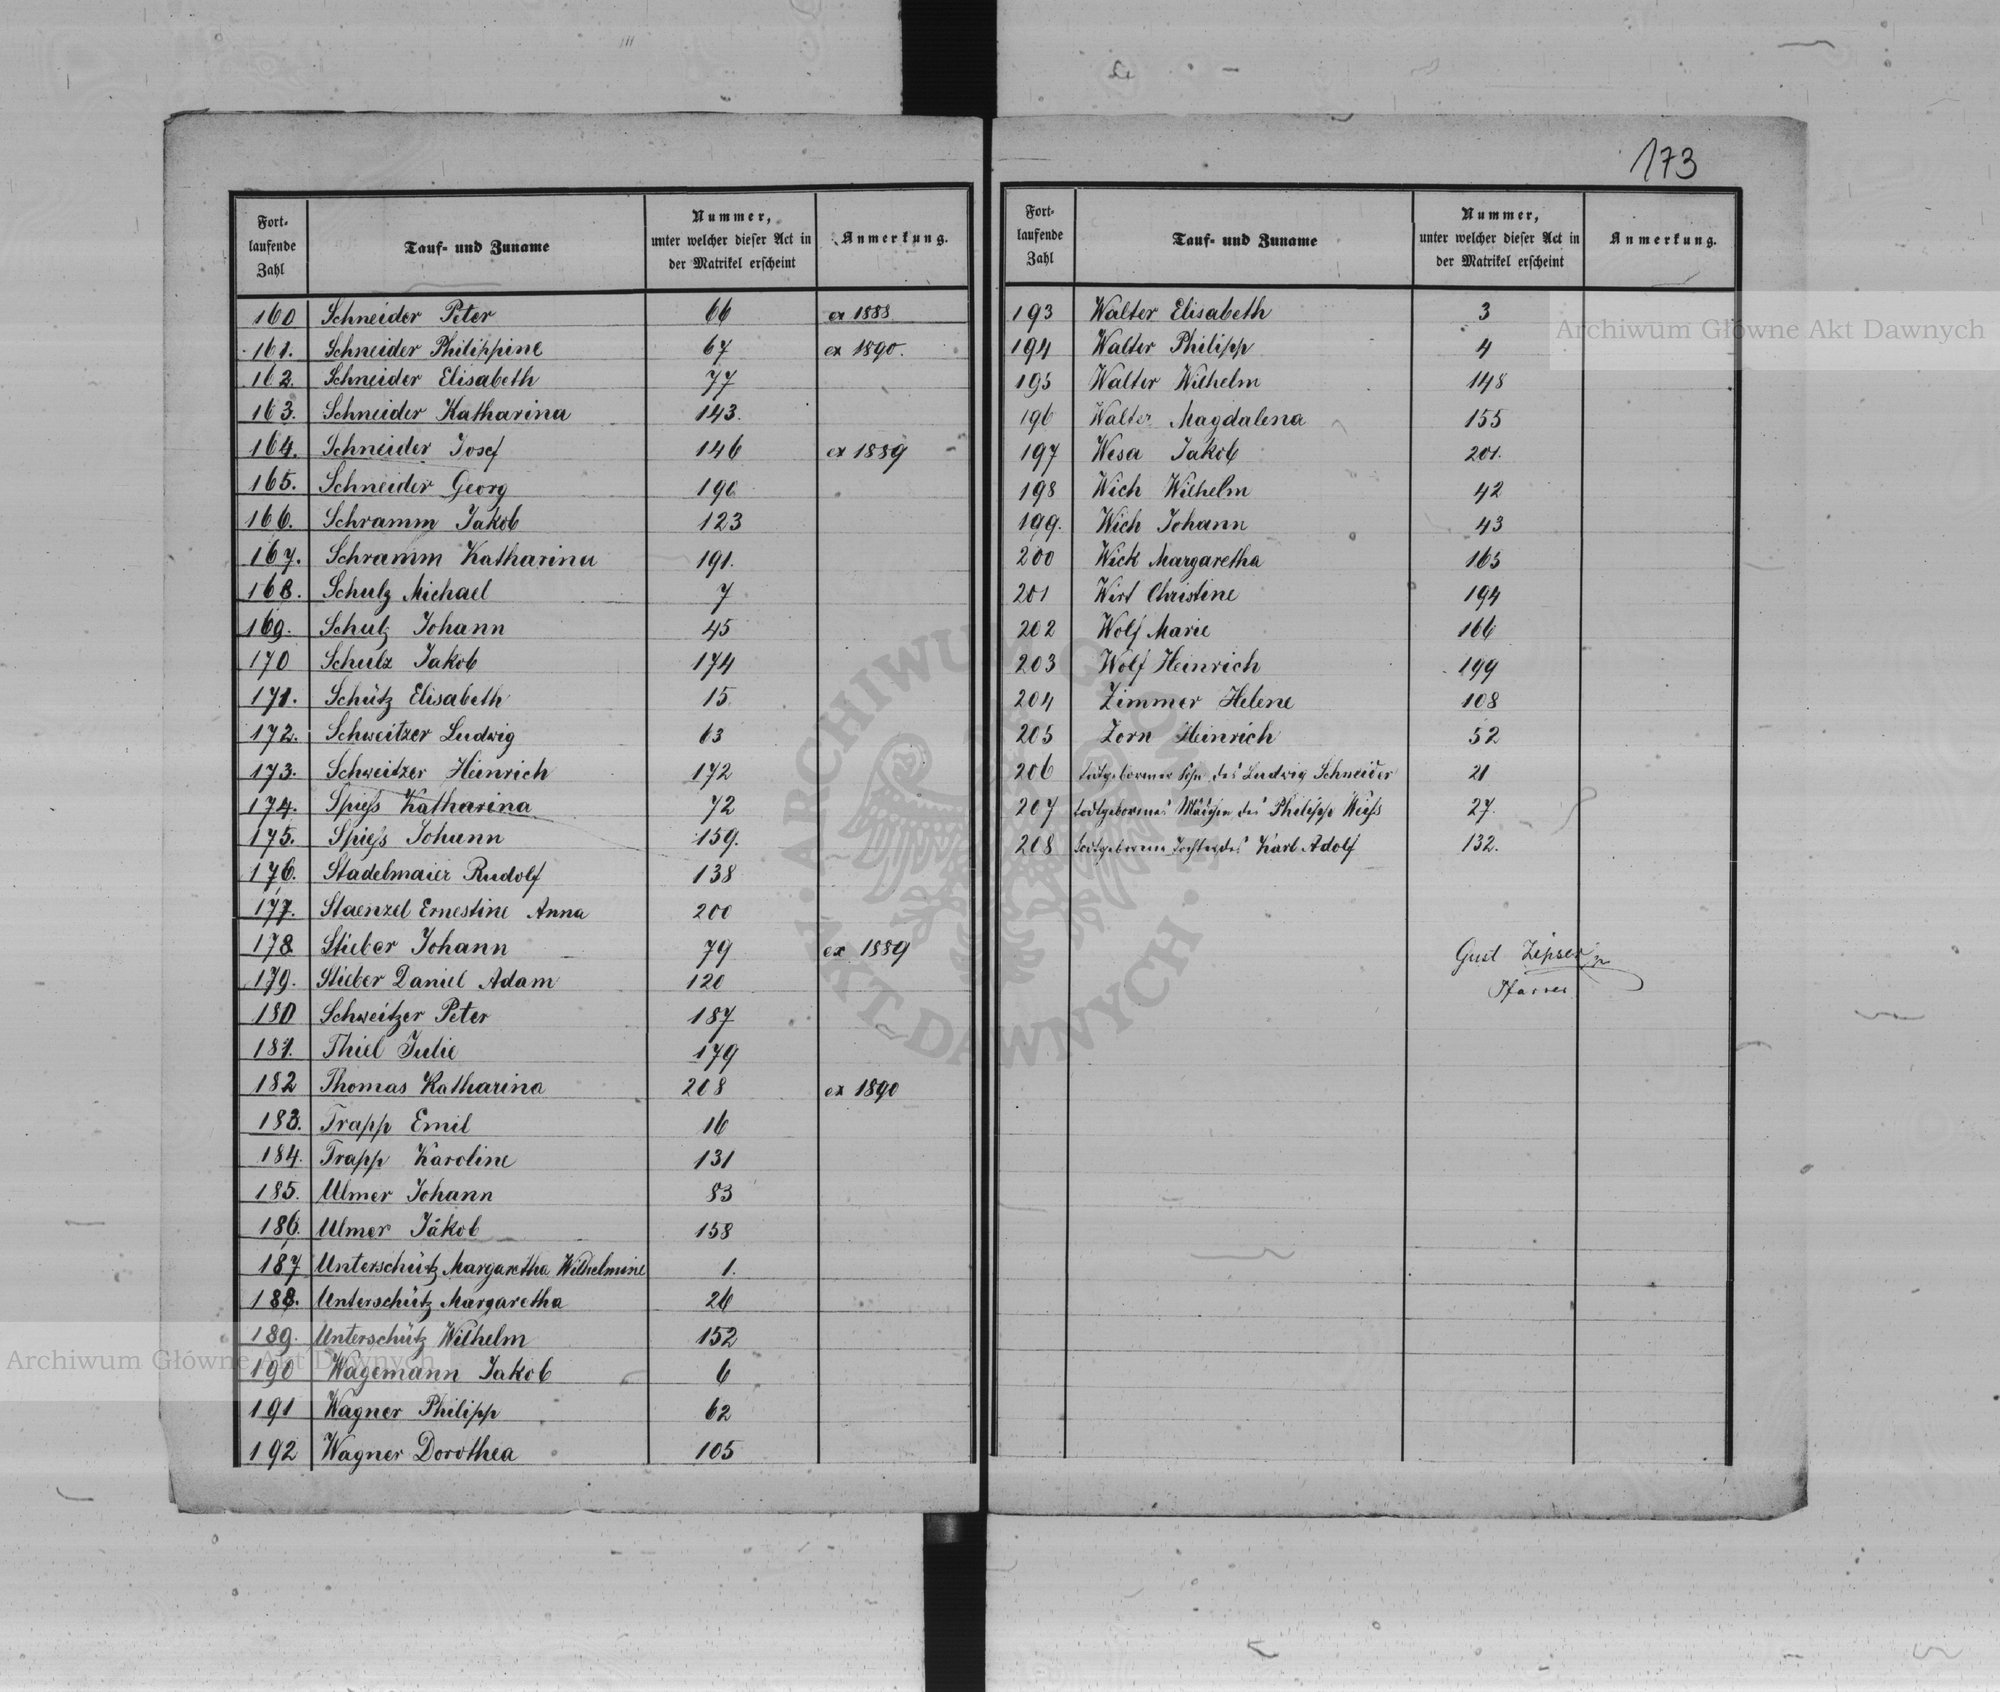 173
Fort-
laufende
Zahl
Tauf- und Zuname
Nummer,
unter welcher dieser Act in
der Matrikel erscheint
Anmerkung.
160 Schneider Peter 66 ex 1888
161. Schneider Philippine 67 ex 1890.
162. Schneider Elisabeth 77
163. Schneider Katharina 143.
164. Schneider Josef 146 ex 1889
165. Schneider Georg 190
166. Schramm Jakob 123
167. Schramm Katharina 191.
168. Schulz Michael 7
169. Schulz Johann 45
170 Schulz Jakob 174
171. Schütz Elisabeth 15
172. Schweitzer Ludwig 63
173. Schweitzer Heinrich 172
174. Spieß Katharina 72
175. Spieß Johann 159.
176. Stadelmaier Rudolf 138
177. Staenzel Ernestine Anna 200
178 Stieber Johann 79 ex 1889
179. Stieber Daniel Adam 120
180 Schweitzer Peter 187
181. Thiel Julie 179
182 Thomas Katharina 208 ex 1890
183. Trapp Emil 16
184. Trapp Karoline 131
185. Ulmer Johann 83
186. Ulmer Jakob 158
187 Unterschütz Margaretha Wilhelmine 1.
188. Unterschütz Margaretha 26
189. Unterschütz Wilhelm 152
190 Wagemann Jakob 6
191 Wagner Philipp 62
192 Wagner Dorothea 105
Fort-
laufende
Zahl
Tauf- und Zuname
Nummer,
unter welcher dieser Act in
der Matrikel erscheint
Anmerkung.
193 Walter Elisabeth 3
194 Walter Philipp 4
195 Walter Wilhelm 148
196 Walter Magdalena 155
197 Wesa Jakob 201.
198 Wich Wilhelm 42
199. Wich Johann 43
200 Wick Margaretha 165
201 Wirt Christine 194
202 Wolf Marie 166
203 Wolf Heinrich 199
204 Zimmer Helene 108
205 Zorn Heinrich 52
206 todtgeborener Sohn des Ludwig Schneider 21
207 todtgeborenes Mädchen des Philipp Weiß 27.
208 todtgeborene Tochter des Karl Adolf 132.
Gust Zipser
Pfarrer
Archiwum Główne Akt Dawnych
Archiwum Główne Akt Dawnych
ARCHIWUM GŁÓWNE
AKT DAWNYCH